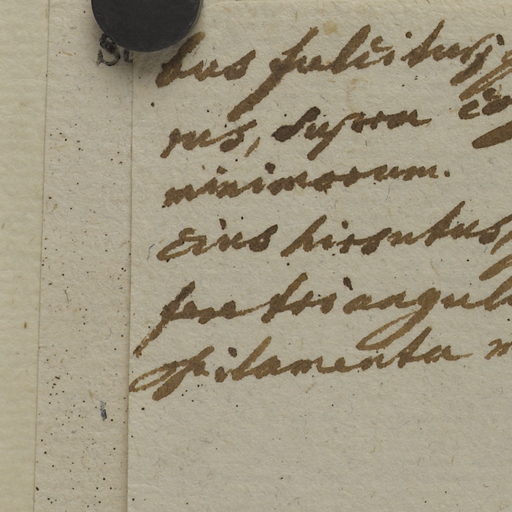 bus fulcitur,
rus, supra
minimorum.
eius hirsutus,
fere triangul
filamenta m